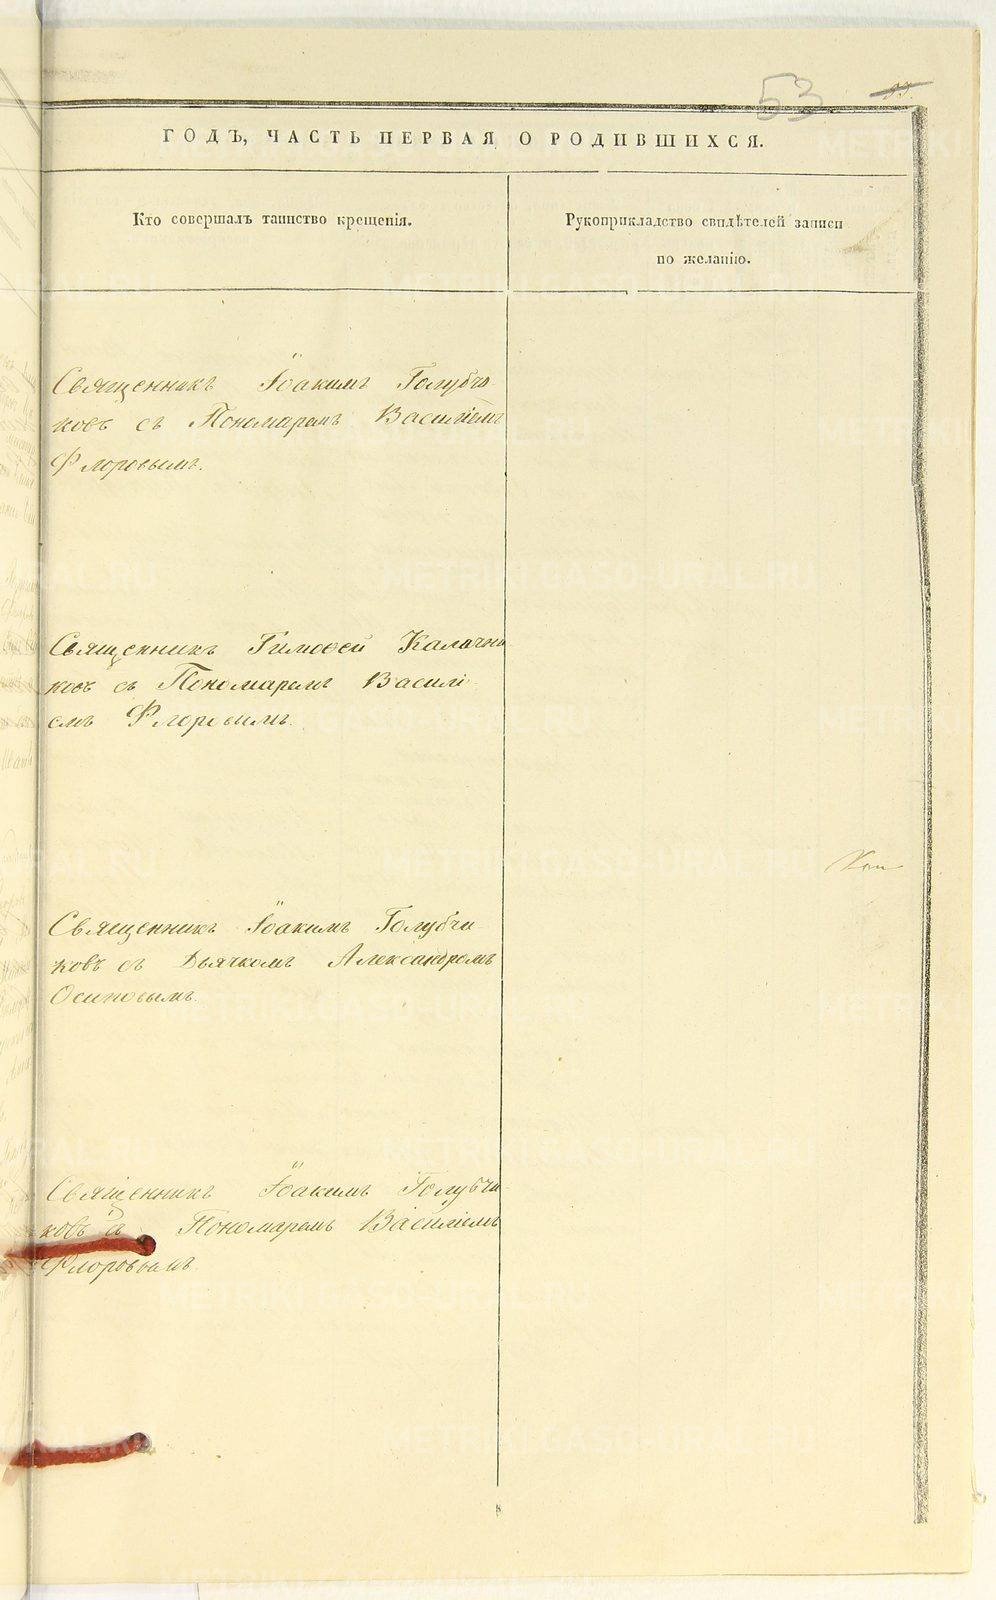 53
ГОДЪ, ЧАСТЬ ПЕРВАЯ О РОДИВШИХСЯ.
Кто совершалъ таинство крещенія.
Рукоприкладство свидѣтелей записи
по желанію.
Священникъ Іоакимъ Голубчи
ковъ съ Пономаремъ Василіемъ
Флоровымъ.
Священникъ Тимоѳей Калачни
ковъ съ Пономаремъ Василі
емъ Флоровымъ.
Священникъ Іоакимъ Голубчи
ковъ съ Дьячкомъ Александромъ
Осиповымъ.
Священникъ Іоакимъ Голубчи-
ковъ съ Пономаремъ Василіемъ
Флоровымъ.
METRIKI.GASO-URAL.RU